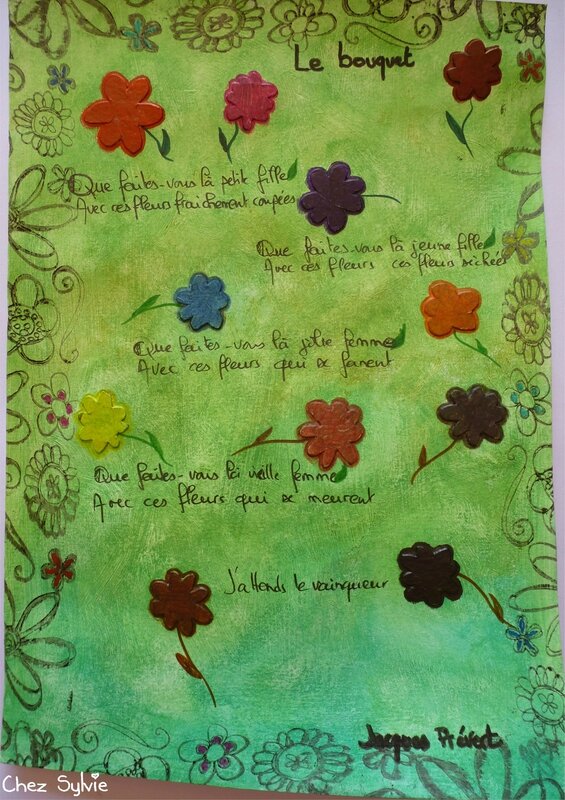 Le bouquet
Que faites-vous là petite fille
Avec ces fleurs fraîchement coupées
Que faites-vous là jeune fille
Avec ces fleurs ces fleurs séchées
Que faites-vous là jolie femme
Avec ces fleurs qui se fanent
Que faites-vous là vieille femme
Avec ces fleurs qui se meurent
J'attends le vainqueur
Jacques Prévert
Chez Sylvie